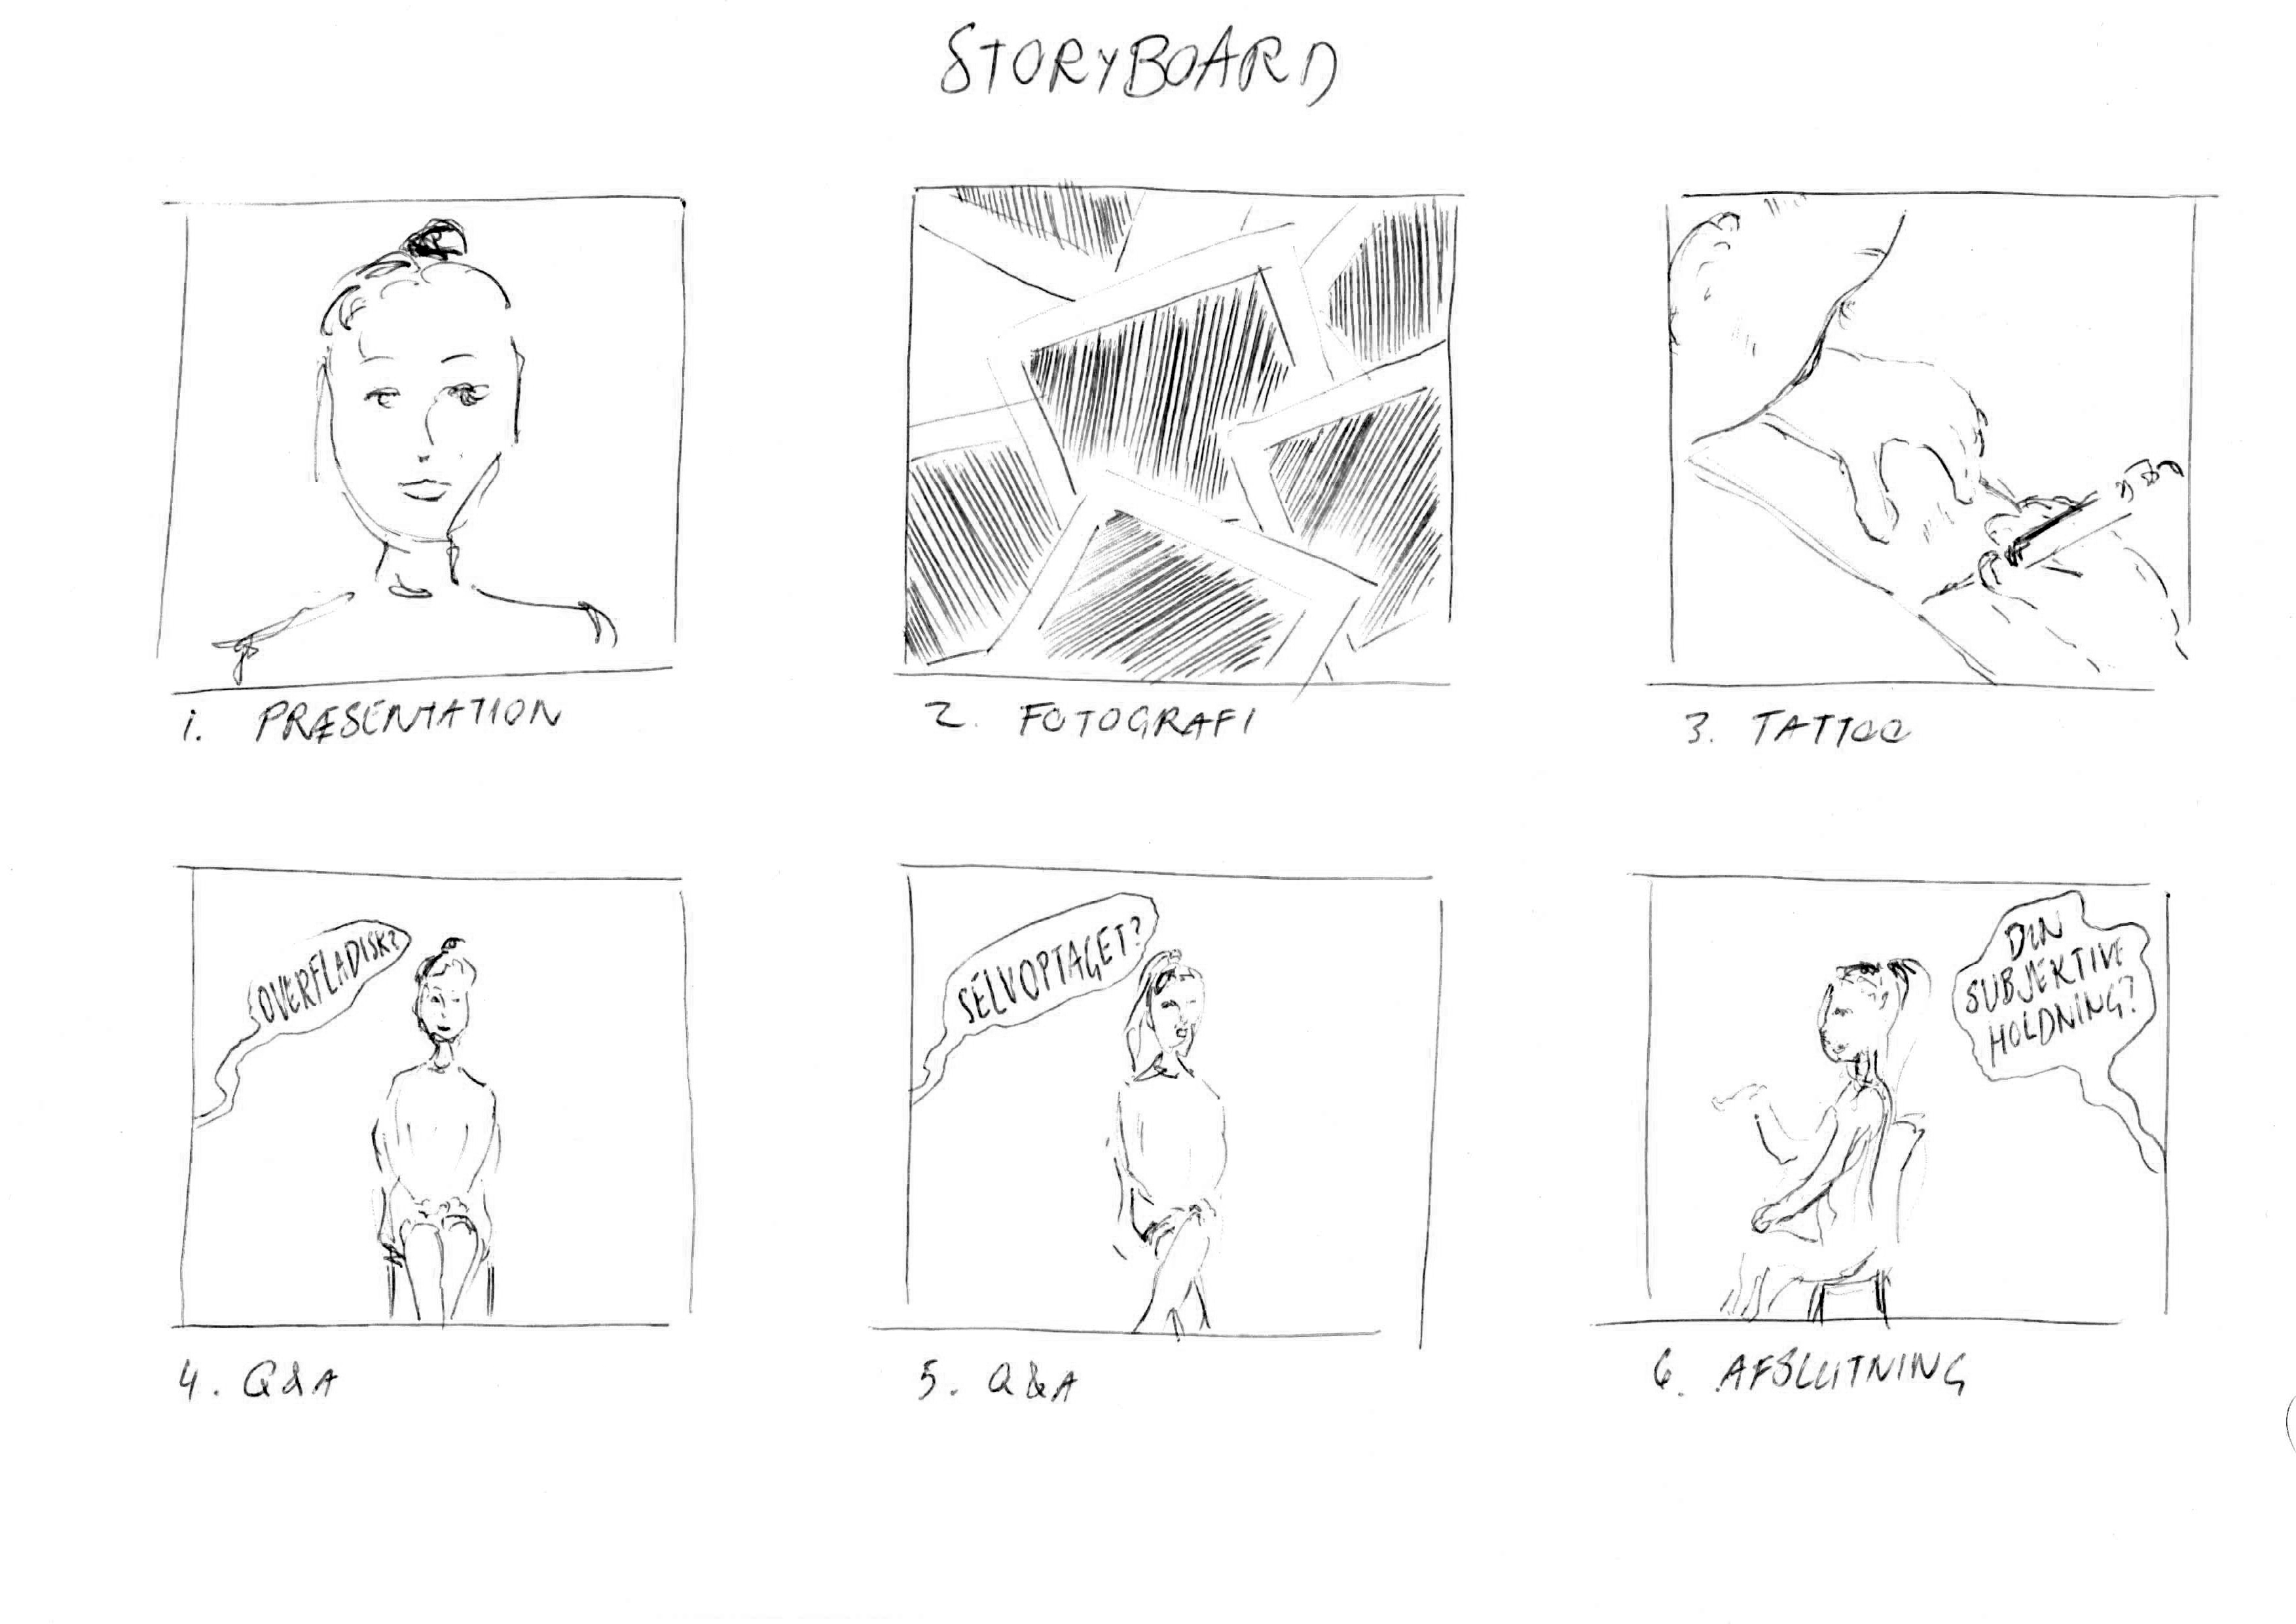 STORYBOARD
1. PRÆSENTATION
2. FOTOGRAFI
3. TATTOO
OVERFLADISK?
SELVOPTAGET?
DIN
SUBJEKTIVE
HOLDNING?
4. Q&A
5. Q&A
6. AFSLUTNING